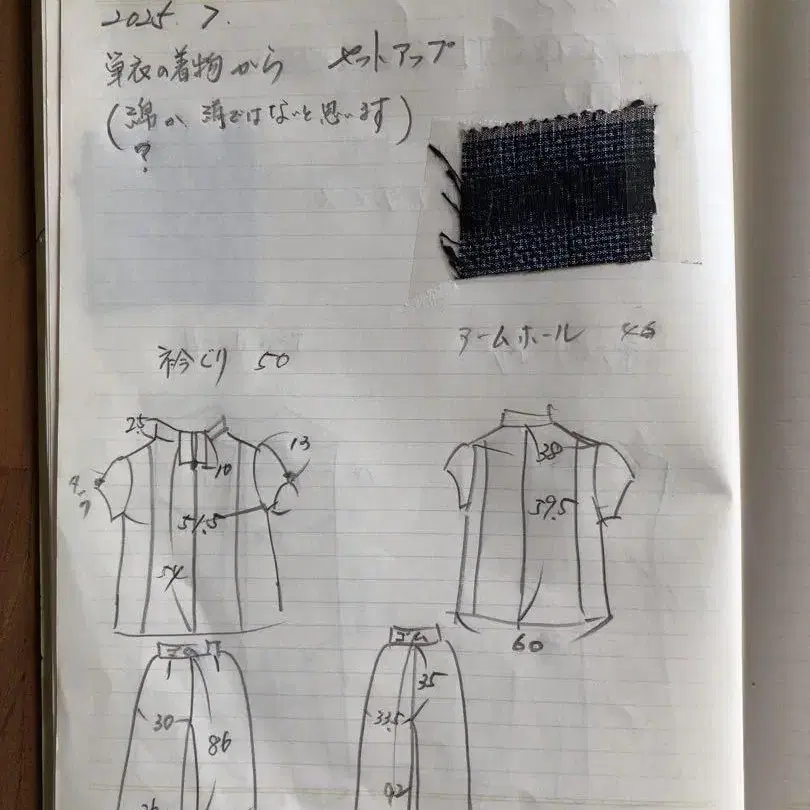 2025. 7.
単衣の着物から セットアップ
(綿か 絹ではないと思います)
?
衿ぐり 50
アームホール 46
2.5
13
10
38
51.5
59.5
54
60
ゴム
ゴム
35
30
33.5
86
92